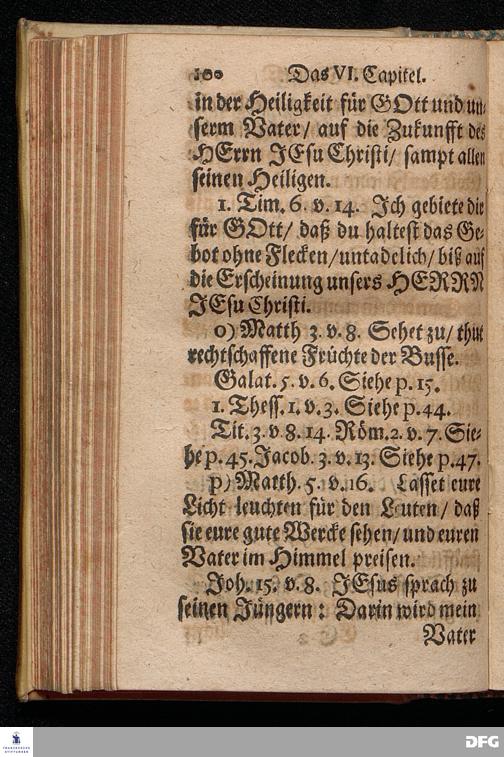 100 Das VI. Capitel.
in der Heiligkeit für GOtt und un-
serm Vater/ auf die Zukunfft des
HErrn JEsu Christi/ sampt allen
seinen Heiligen.
1. Tim. 6. v. 14. Ich gebiete dir
für GOtt/ daß du haltest das Ge-
bot ohne Flecken/untadelich/ biß auf
die Erscheinung unsers HERRN
JEsu Christi.
o) Matth 3. v. 8. Sehet zu/ thut
rechtschaffene Früchte der Busse.
Galat. 5. v. 6. Siehe p. 15.
1. Thess. 1. v. 3. Siehe p. 44.
Tit. 3. v 8. 14. Röm. 2. v. 7. Sie-
he p. 45. Jacob. 3. v. 13. Siehe p. 47.
p) Matth. 5. v. 16. Lasset eure
Licht leuchten für den Leuten/ daß
sie eure gute Wercke sehen/ und euren
Vater im Himmel preisen.
Joh. 15. v. 8. JEsus sprach zu
seinen Jüngern: Darin wird mein
Vater
FRANCKESCHE
STIFTUNGEN
DFG